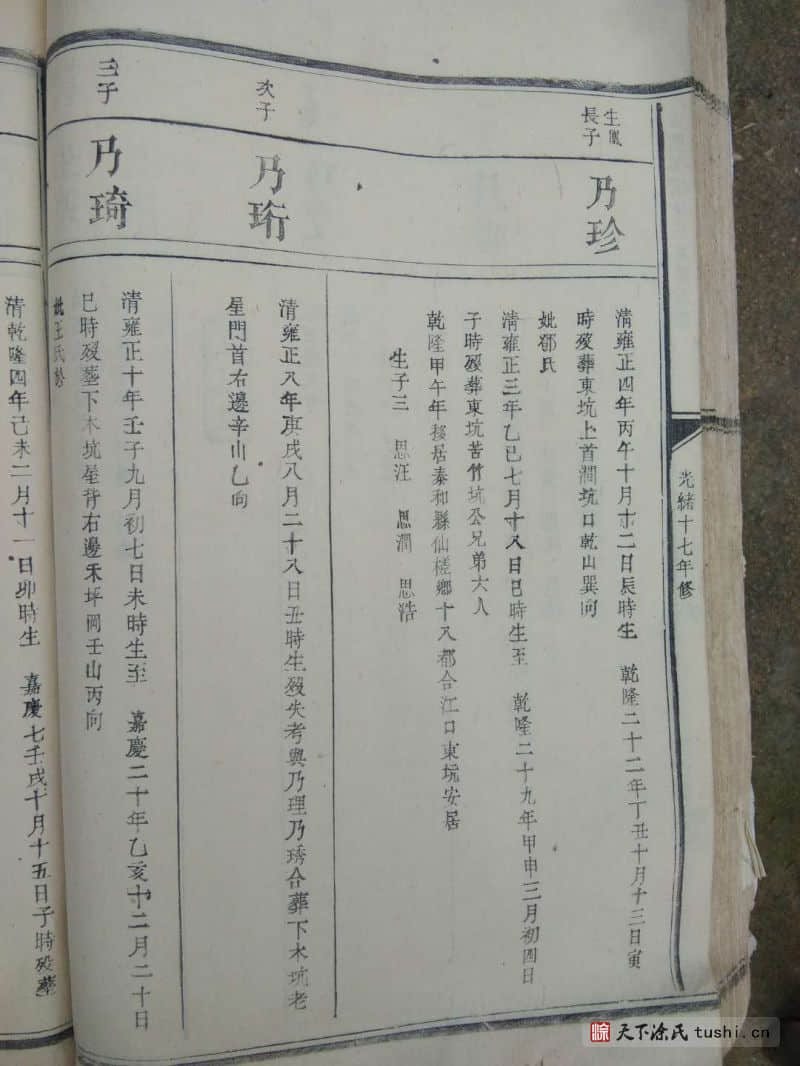 光緒十七年修
生鳳
長子
乃珍
清雍正四年丙午十月十二日辰時生 乾隆二十二年丁丑十月十三日寅
時歿葬東坑上首澗坑口乾山巽向
妣鄧氏
清雍正三年乙巳七月十八日巳時生至 乾隆二十九年甲申三月初四日
子時歿葬東坑苦竹坑公兄弟六人
乾隆甲午年移居泰和縣仙槎鄉十八都合江口東坑安居
生子三 思汪 思澗 思浩
次子
乃珩
清雍正八年庚戌八月二十八日丑時生歿失考與乃理乃琇合葬下木坑老
星門首右邊辛山乙向
三子
乃琦
清雍正十年壬子九月初七日未時生至 嘉慶二十年乙亥十二月二十日
巳時歿葬下木坑屋背右邊禾坪壬山丙向
妣王氏
清乾隆四年己未二月十一日卯時生 嘉慶七壬戌十月十五日子時歿葬
天下涂氏 tushi.cn